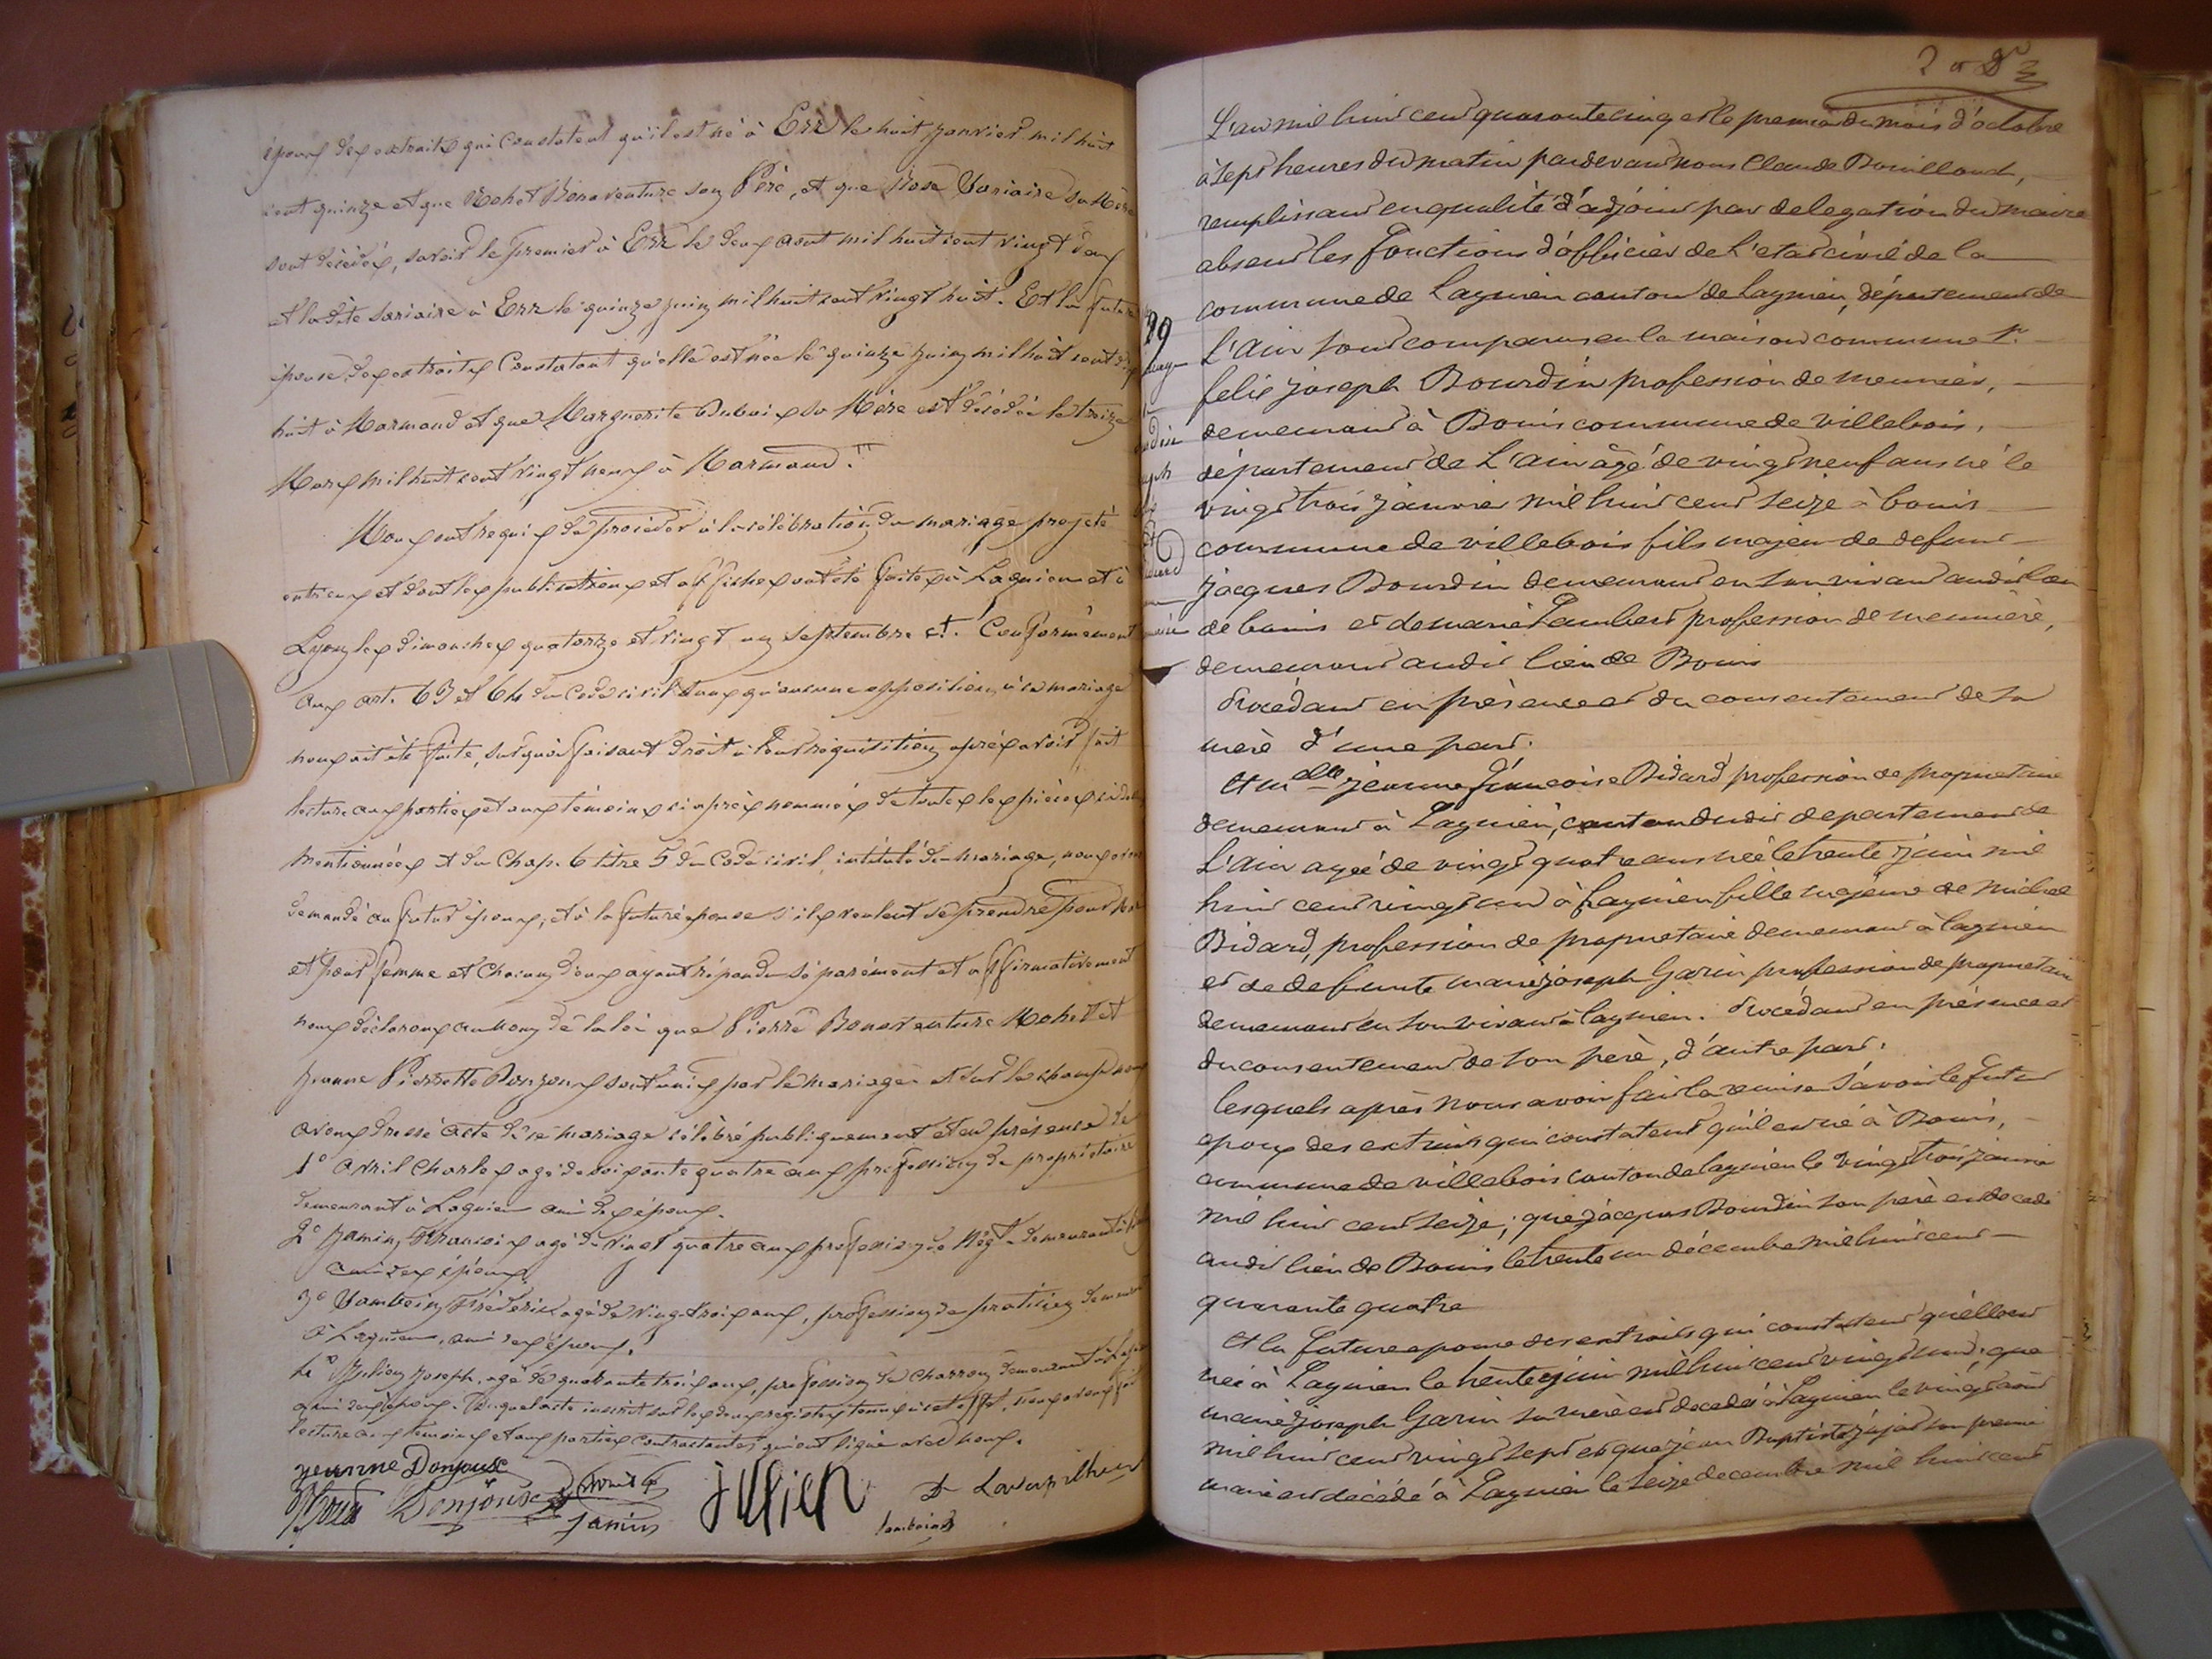 époux des extraits qui constatent qu'il est né à Err le huit janvier mil huit
cent quinze et que Bonaventure son Père, et que Rose Sariaire sa Mère
sont décédés, savoir le premier à Err le deux aout mil huit cent vingt deux
et la dite Sariaire à Err le quinze juin mil huit cent vingt huit. Et la future
épouse, des extraits constatant qu'elle est née le quinze juin mil huit cent dix
huit à Marmand et que Marguerite Dubois sa Mère est décédée le treize
Mars mil huit cent vingt neuf à Marmand.
Nous ont requis de procéder à la célébration du mariage projeté
entr'eux et dont les publications et affiches ont été faites à Lagnieu et à
Lyon les dimanches quatorze et vingt un septembre ct. Conformément
aux art. 63 et 64 du Code civil sans qu'aucune opposition à ce mariage
nous ait été faite, sur quoi faisant droit à leur réquisition après avoir fait
lecture aux parties et aux témoins ci après nommés de toutes les pièces ci dessus
mentionnées et du Chap. 6 titre 5 du Code civil, intitulé du mariage, nous avons
demandé au futur époux, et à la future épouse s'ils veulent se prendre pour mari
et pour femme et chacun d'eux ayant répondu séparément et affirmativement
nous déclarons au nom de la loi que Pierre Bonaventure et
Jeanne Pierrette Donjoux sont unis par le mariage et sur le champ nous
avons dressé acte de ce mariage célébré publiquement et en présence de
1° Avril Charles agé de soixante quatre ans profession de propriétaire
demeurant à Lagnieu ami des époux.
2° Jamin, François agé de vingt quatre ans profession de Négt. demeurant
ami des époux.
3° Sambein Fréderic agé de vingt trois ans, profession de praticien demeurant
à Lagnieu, ami des époux.
4° Julien Joseph, agé de quarante trois ans, profession de Charron demeurant à Lagnieu
ami des époux. Du quel acte inscrit sur les deux registres tenus à cet effet, nous avons fait
lecture aux témoins et aux parties contractantes qui ont signé avec nous.
Jeanne Donjoux
Donjoux Avril
Jamin
Julien
L'an mil huit cent quarante cinq et le premier du mois d'octobre
à sept heures du matin pardevant nous Claude Bouilloud,
remplissant en qualité d'adjoint par delegation du maire
absent les fonctions d'officier de l'etat civil de la
commune de Lagnieu canton de Lagnieu, département de
L'Ain sont comparus en la maison commune 1°.
felix joseph Bourdin profession de meunier,
demeurant à Bouis commune de villebois,
département de L'ain âgé de vingt neuf ans né le
vingt trois janvier mil huit cent seize à bouis
commune de villebois fils majeur de defunt
jacques Bourdin demeurant en son vivant audit lieu
de bouis et de marie Lambert profession de meunière,
demeurant audit lieu de Bouis
Procédant en présence et du consentement de sa
mère d'une part.
Et melle jeanne françoise Bidard profession de propriétaire
demeurant à Lagnieu, canton dudit departement de
L'ain agée de vingt quatre ans née le trente juin mil
huit cent vingt un à Lagnieu fille majeure de michel
Bidard, profession de propriétaire demeurant à lagnieu
et de defunte marie joseph Garin profession de proprietaire
demeurant en son vivant à lagnieu. Procédant en présence et
du consentement de son père, d'autre part.
Lesquels après nous avoir fait la remise savoir le futur
epoux des extraits qui constatent qu'il est né à Bouis,
commune de villebois canton de lagnieu le vingt trois janvier
mil huit cent seize; que jacques Bourdin son père est decedé
audit lieu de Bouis le trente un décembre mil huit cent
quarante quatre
Et la future epouse des extraits qui constatent qu'elle est
née à Lagnieu le trente juin mil huit cent vingt un; que
marie joseph Garin sa mère est decedée à Lagnieu le vingt août
mil huit cent vingt sept et que jean Baptiste son premier
mari est décédé à Lagnieu le seize decembre mil huit cent